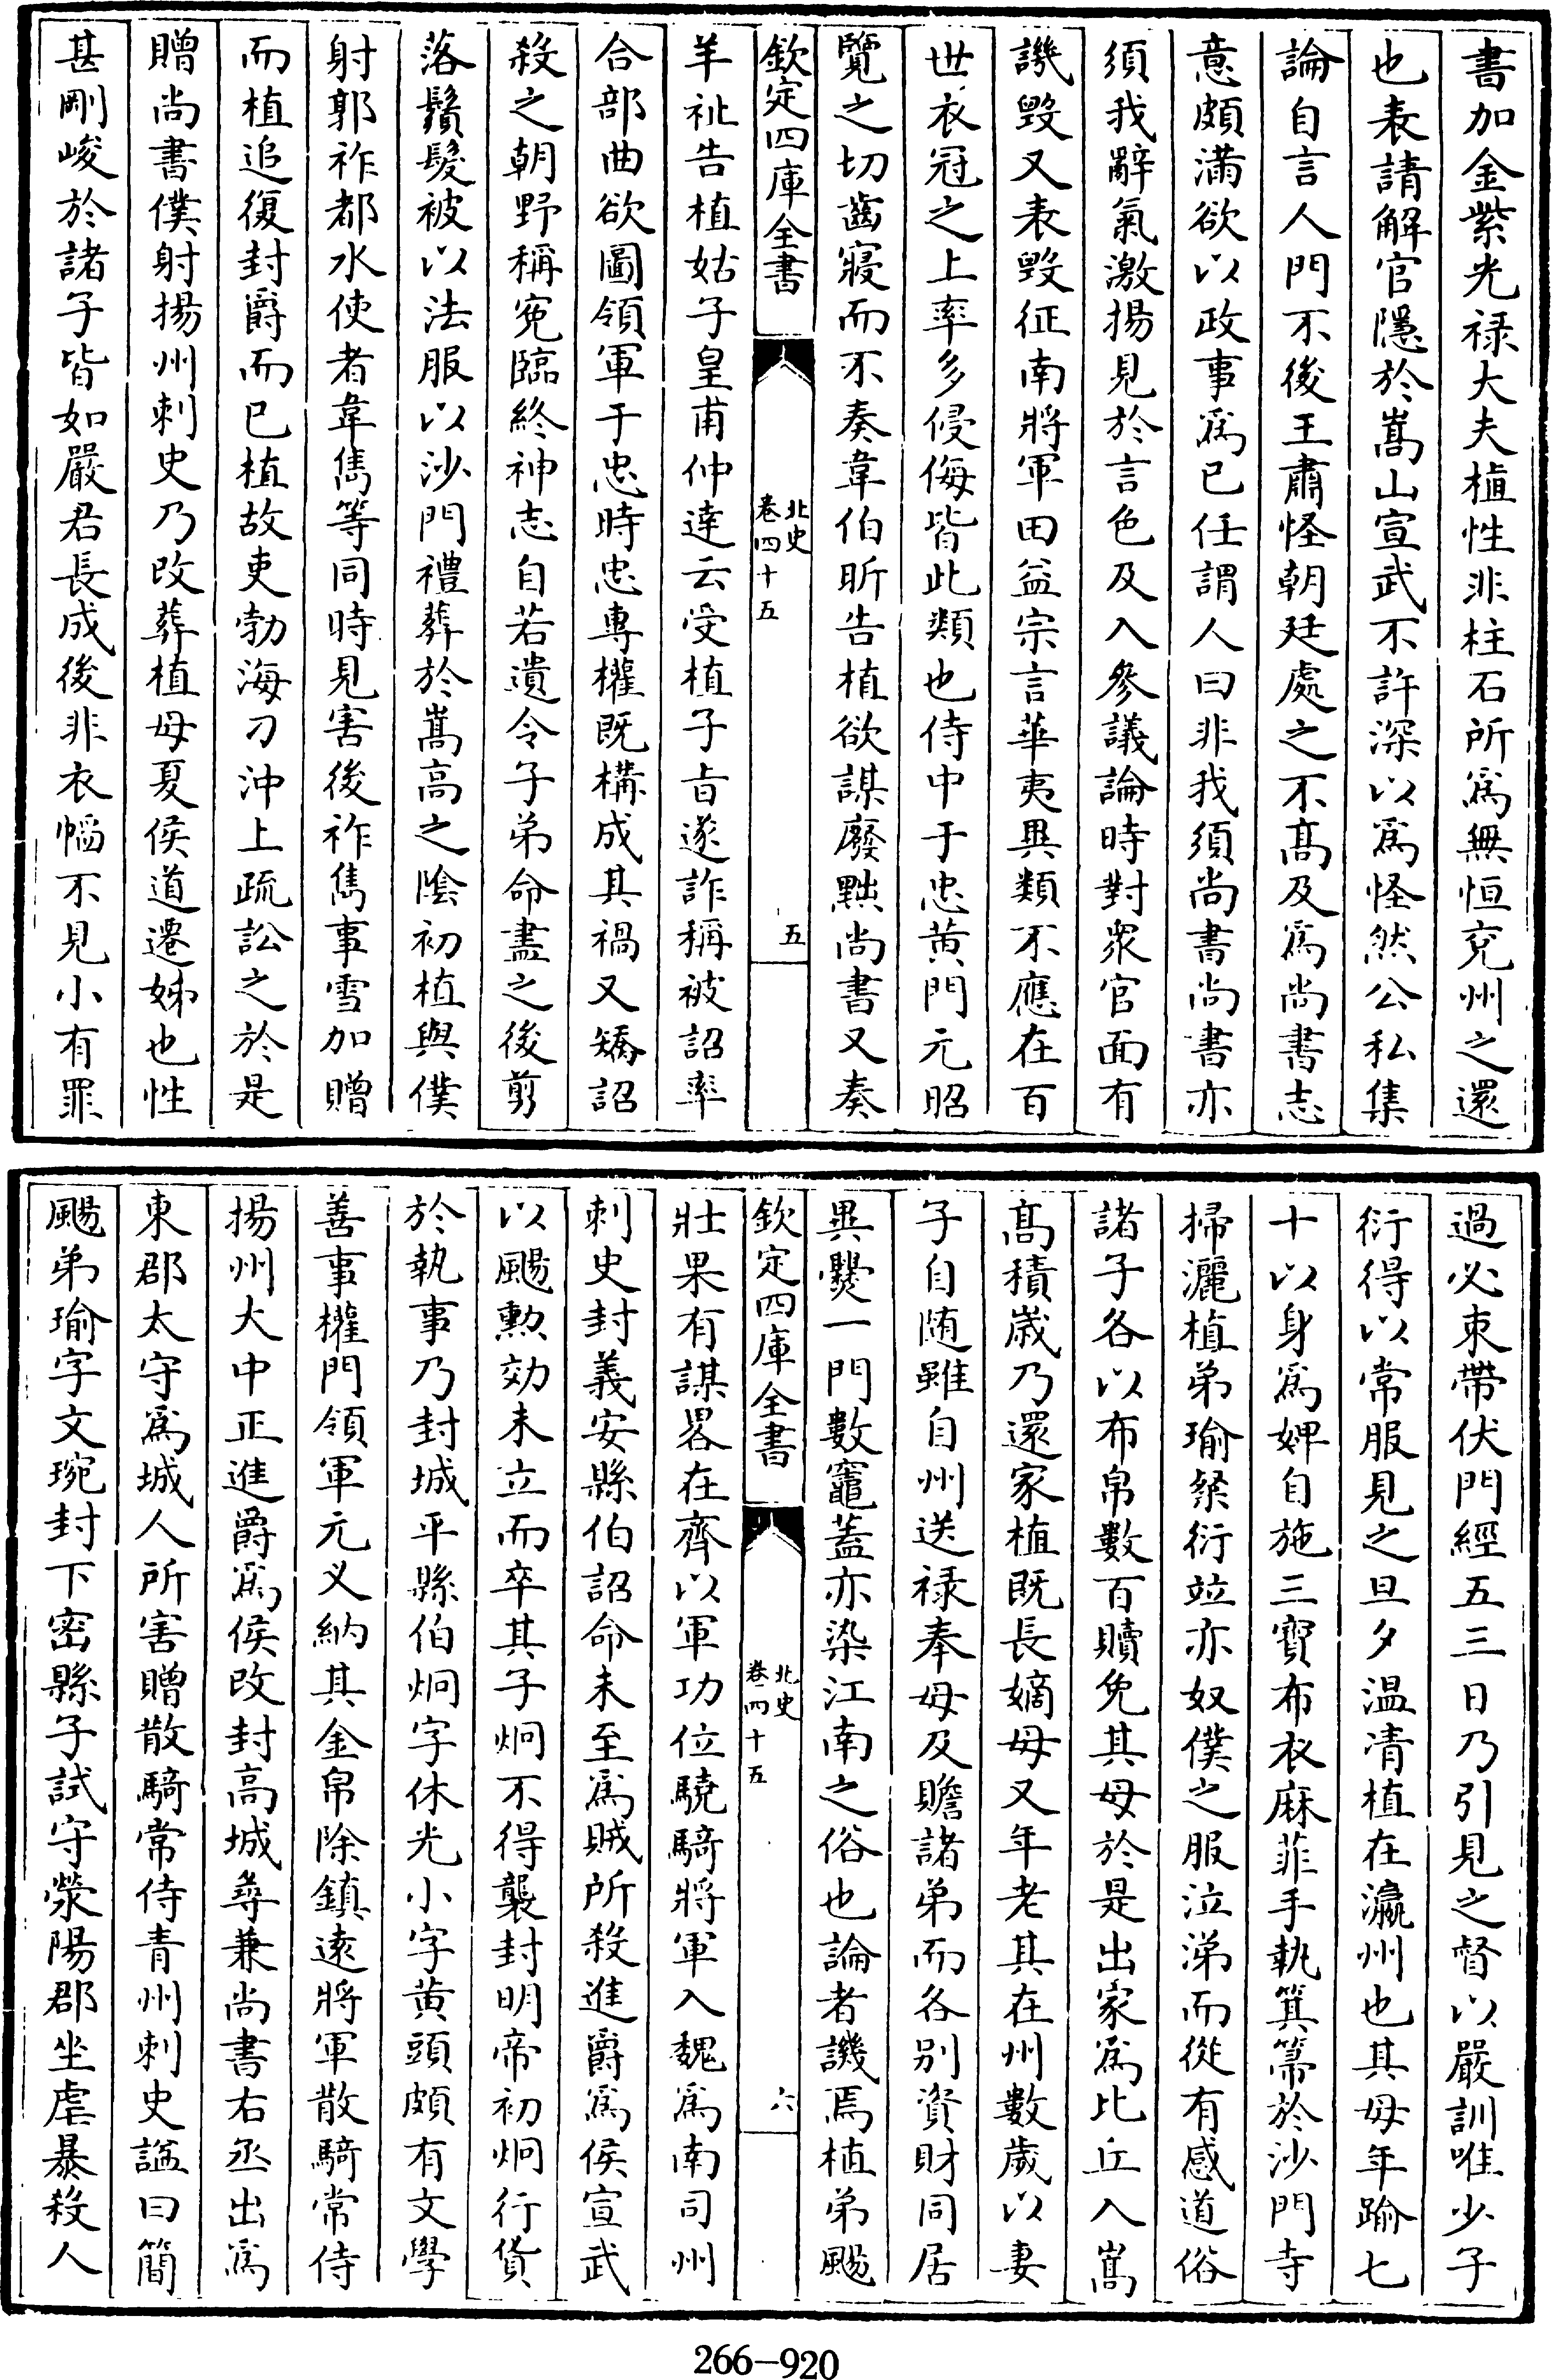 書加金紫光禄大夫植性非柱石所爲無恒兖州之還
也表請解官隱於嵩山宣武不許深以爲怪然公私集
論自言人門不後王肅怪朝廷處之不髙及爲尚書志
意頗滿欲以政事爲已任謂人曰非我須尚書尚書亦
須我辭氣激揚見於言色及入參議論時對衆官面有
譏毁又表毁征南將軍田益宗言華夷異類不應在百
世衣冠之上率多侵侮皆此類也侍中于忠黄門元昭
覽之切齒寢而不奏韋伯昕告植欲謀廢黜尚書又奏
欽定四庫全書
北史
卷四十五
五
羊祉告植姑子皇甫仲達云受植子㫖遂詐稱被詔率
合部曲欲圖領軍于忠時忠專權既構成其禍又矯詔
殺之朝野稱寃臨終神志自若遺令子弟命盡之後剪
落鬚髮被以法服以沙門禮葬於嵩高之隂初植與僕
射郭祚都水使者韋雋等同時見害後祚雋事雪加贈
而植追復封爵而已植故吏勃海刁沖上疏訟之於是
贈尚書僕射揚州刺史乃改葬植母夏侯道遷姊也性
甚剛峻於諸子皆如嚴君長成後非衣幍不見小有罪
過必束帶伏門經五三日乃引見之督以嚴訓唯少子
衍得以常服見之旦夕温凊植在瀛州也其母年踰七
十以身爲婢自施三寳布衣麻菲手執箕箒於沙門寺
掃灑植弟瑜粲衍竝亦奴僕之服泣涕而從有感道俗
諸子各以布帛數百贖免其母於是出家爲比丘入嵩
髙積嵗乃還家植既長嫡母又年老其在州數歲以妻
子自随雖自州送禄奉母及贍諸弟而各别資財同居
異㸑一門數竈蓋亦染江南之俗也論者譏焉植弟颺
欽定四庫全書
北史
卷四十五
六
壯果有謀畧在齊以軍功位驍騎將軍入魏爲南司州
刺史封義安縣伯詔命未至爲賊所殺進爵爲侯宣武
以颺勲効未立而卒其子炯不得襲封明帝初炯行貨
於執事乃封城平縣伯炯字休光小字黄頭頗有文學
善事權門領軍元义納其金帛除鎮逺將軍散騎常侍
揚州大中正進爵爲侯改封高城尋兼尚書右丞出爲
東郡太守爲城人所害贈散騎常侍青州刺史諡曰簡
颺弟瑜字文琬封下密縣子試守滎陽郡坐虐暴殺人
266-920